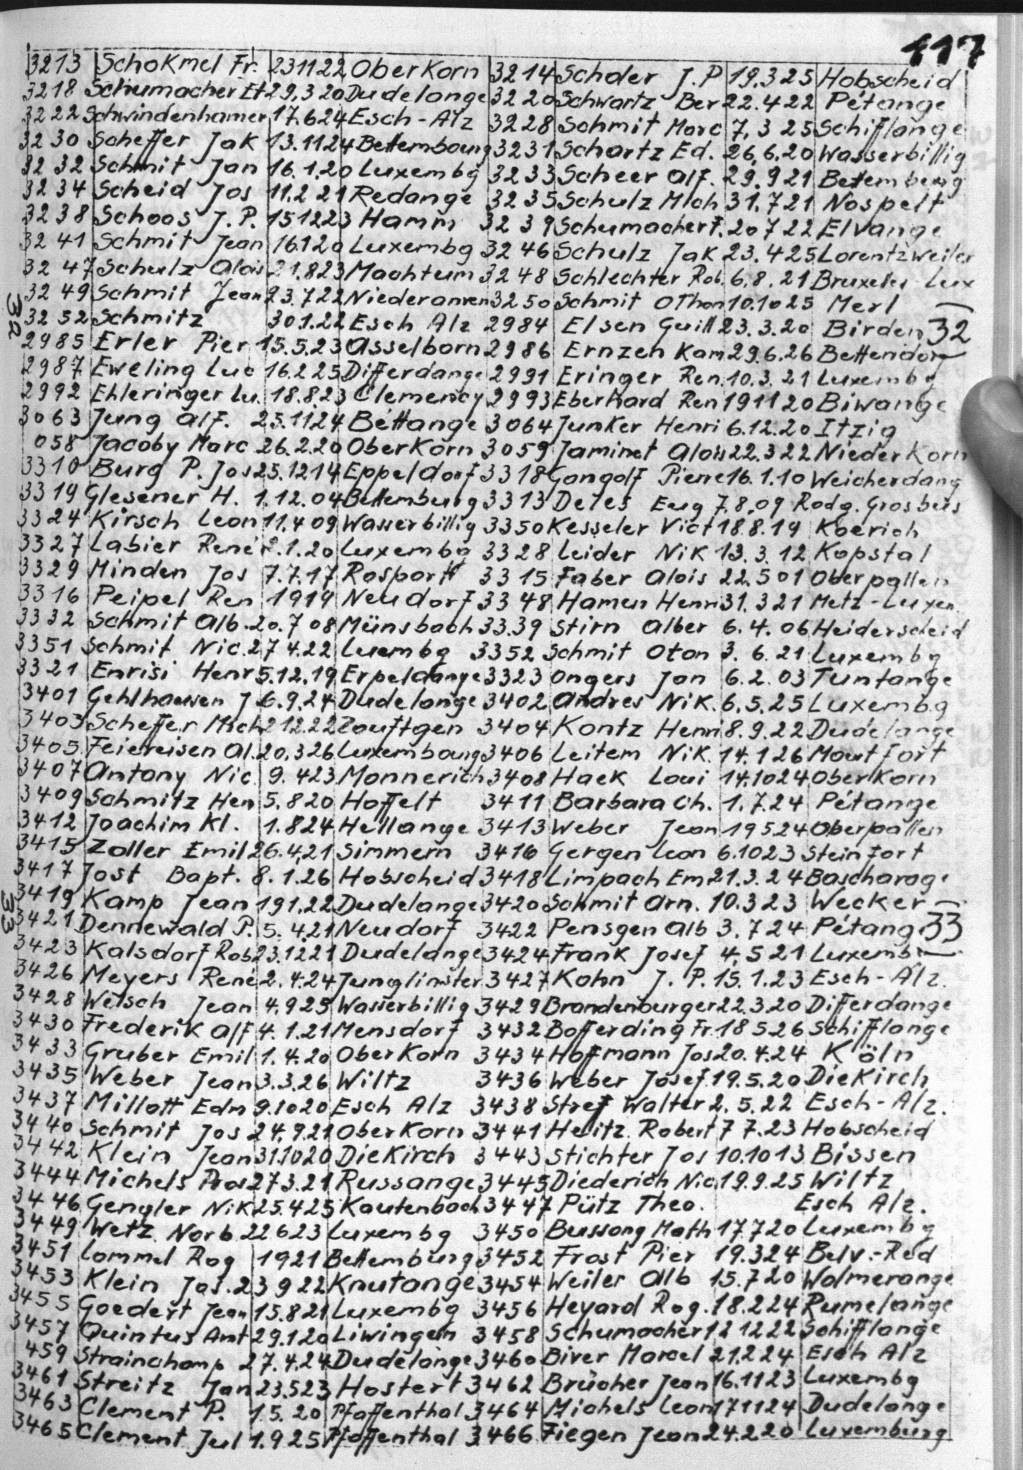 117
3213 Schokmel Fr. 231122 OberKorn 3214 Scholer J.P 19.325 Hobscheid
3218 Schumacher Et 29.320 Dudelange 3220 Schwartz Ber 22.422 Pétange
3222 Schwindenhamer 17.624 Esch-Alz 3228 Schmit Marc 7.325 Schifflange
3230 Scheffer Jak 13.1124 Bettembourg 3231 Schartz Ed. 26.6.20 Wasserbillig
3232 Schmit Jan 16.1.20 Luxembg 3233 Scheer Alf. 29.921 Bettemberg
3234 Scheid Jos 11.221 Redange 3235 Schulz Mich 31.721 Nospelt
3238 Schoos J.P. 151223 Hamm 3239 Schumacher F. 20722 Elvange
3241 Schmit Jean 16120 Luxembg 3246 Schulz Jak 23.425 Lorentzweiler
3247 Schulz Alois 21.823 Machtum 3248 Schlechter Rob. 6.8.21 Bruxelles-Lux
3249 Schmit Jean 23.722 Niederanven 3250 Schmit Othon 10.1025 Merl
32
3252 Schmitz 301.22 Esch Alz 2984 Elsen Guill 23.3.20 Birden 32
2985 Erler Pier 15.5.23 Asselborn 2986 Ernzen Kam 29.6.26 Bettendor
2987 Eweling Luc 16.225 Differdange 2991 Eringer Ren. 10.3.21 Luxembg
2992 Ehleringer Lu. 18.823 Clemency 2993 Eberhard Ren 191120 Biwange
3063 Jung Alf. 25.1124 Bettange 3064 Junker Henri 6.12.20 Itzig
058 Jacoby Marc 26.2.20 OberKorn 3059 Jaminet Alois 22.322 NiederKorn
3310 Burg P. Jos 25.1214 Eppeldorf 3318 Gongolf Pierre 16.1.10 Weicherdang
3319 Glesener H. 1.12.04 Bettemburg 3313 Deles Eug 7.8.09 Rodg. Grosbus
3324 Kirsch Leon 11.409 Wasserbillig 3350 Kesseler Vict 18.8.19 Koerich
3327 Labier René 2.1.20 Luxembg 3328 Leider Nik 13.3.12 Kopstal
3329 Minden Jos 7.7.17 Rosport 3315 Faber Alois 22.501 Oberpallen
3316 Peipel Ren 1919 Neudorf 3348 Hamen Henri 31.321 Metz-Luxem
3332 Schmit Alb. 20.708 Münsbach 3339 Stirn Alber 6.4.06 Heiderscheid
3351 Schmit Nic. 27422 Luembg 3352 Schmit Oton 3.6.21 Luxembg
3321 Enrisi Henr 5.12.19 Erpeldange 3323 Ongers Jon 6.2.03 Tuntange
3401 Gehlhausen J 6.9.24 Dudelange 3402 Andres Nik. 6.5.25 Luxembg
3403 Scheffer Mich 21222 Zouftgen 3404 Kontz Henri 8.9.22 Dudelange
3405 Feiereisen Al. 20.326 Luxembourg 3406 Leitem Nik. 14.126 Moutfort
3407 Antony Nic. 9.423 Monnerich 3408 Haek Loui 14.1024 OberKorn
3409 Schmitz Hen 5.820 Hoffelt 3411 Barbara Ch. 1.7.24 Pétange
3412 Joachim Kl. 1.824 Hellange 3413 Weber Jean 19524 Oberpallen
3415 Zoller Emil 26.421 Simmern 3416 Gergen Leon 6.1023 Steinfort
3417 Jost Bapt. 8.1.26 Hobscheid 3418 Limpach Em 21.3.24 Bascharage
33
3419 Kamp Jean 191.22 Dudelange 3420 Schmit Arn. 10.323 Wecker 33
3421 Dennewald P. 5.421 Neudorf 3422 Pensgen Alb 3.724 Pétang
3423 Kalsdorf Rob 23.1221 Dudelange 3424 Frank Josef 4.521 Luxemb
3426 Meyers René 2.4.24 Junglinster 3427 Kohn J.P. 15.1.23 Esch-Alz.
3428 Welsch Jean 4.925 Wasserbillig 3429 Brandenburger 22.3.20 Differdange
3430 Frederik Alf 4.1.21 Mensdorf 3432 Bofferding Fr. 18526 Schifflange
3433 Gruber Emil 1.4.20 OberKorn 3434 Hoffmann Jos 20.4.24 Köln
3435 Weber Jean 3.3.26 Wiltz 3436 Weber Josef 19.5.20 DieKirch
3437 Millott Edm 9.1020 Esch Alz 3438 Stref Walter 2.5.22 Esch-Alz.
3440 Schmit Jos 24.921 OberKorn 3441 Heitz Robert 7 7.23 Hobscheid
3442 Klein Jean 31.1020 DieKirch 3443 Stichter Jos 10.1013 Bissen
3444 Michels Pros 273.21 Russange 3445 Diederich Nic 19.9.25 Wiltz
3446 Gengler Nik 25.425 Kautenbach 3447 Pütz Theo. Esch Alz.
3449 Wetz Norb. 22623 Luxembg 3450 Bussong Math 17720 Luxembg
3451 Lommel Rog 1921 Bettemburg 3452 Frost Pier 19.324 Belv.-Red
3453 Klein Jos. 23922 Knutange 3454 Weiler Alb 15.720 Wolmerange
3455 Goedert Jean 15.821 Luxembg 3456 Heyard Rog. 18.224 Rumelange
3457 Quintus Ant 29.120 Liwingen 3458 Schumacher 121222 Schifflange
459 Strainchamp 27.4.24 Dudelange 3460 Biver Marcel 21.224 Esch Alz
3461 Streitz Jan 23.523 Hostert 3462 Brücher Jean 16.1123 Luxembg
3463 Clement P. 15.20 Pfaffenthal 3464 Michels Leon 171124 Dudelange
3465 Clement Jul 1.925 Pfaffenthal 3466 Fiegen Jean 24.220 Luxemburg